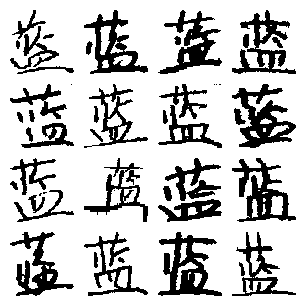 蓝蓝蓝蓝
蓝蓝蓝蓝
蓝蓝蓝蓝
蓝蓝蓝蓝